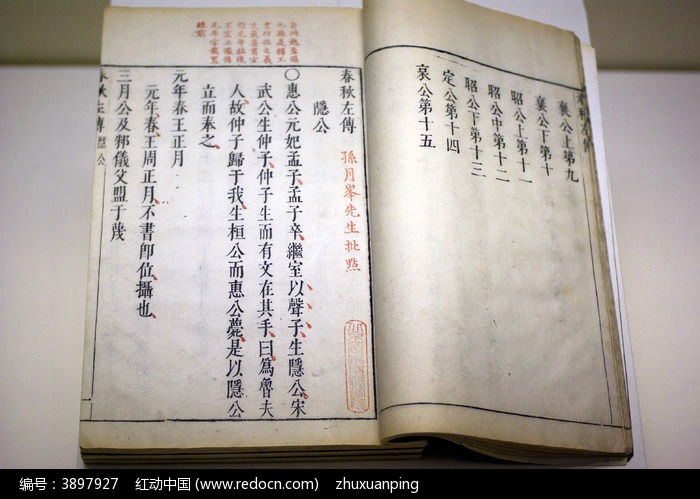 春秋左傳
襄公上第九
襄公下第十
昭公上第十一
昭公中第十二
昭公下第十三
定公第十四
哀公第十五
春秋左傳
隱公
孫月峯先生批點
○惠公元妃孟子孟子卒繼室以聲子生隱公宋
武公生仲子仲子生而有文在其手曰爲魯夫
人故仲子歸于我生桓公而惠公薨是以隱公
立而奉之
元年春王正月
元年春王周正月不書卽位攝也
三月公及邾儀父盟于蔑
春秋左傳 隱公
编号：3897927 红动中国 (www.redocn.com) zhuxuanping